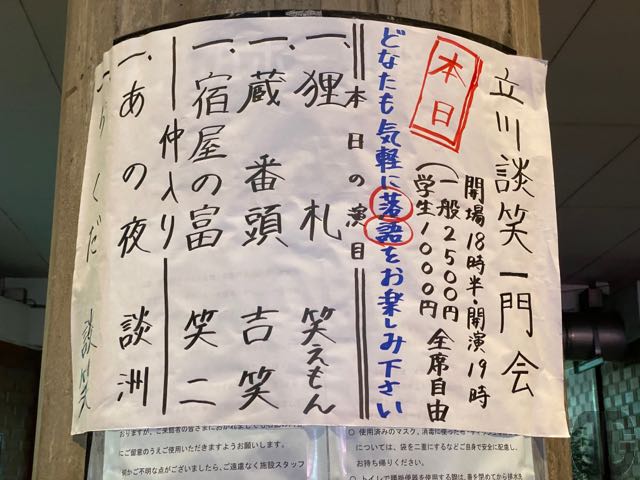 立川談笑一門会
本日
開場18時半・開演19時
(一般2500円
学生1000円
全席自由
どなたも気軽に落語をお楽しみ下さい
本日の演目
一、狸札 笑えもん
一、蔵番頭 吉笑
一、宿屋の富 笑二
仲入り
一、あの夜 談洲
一、らくだ 談笑
おりますが、ご来館者の皆さまにおかれまして
にご留意のうえご使用いただきますようお願いします。
何かご不明な点がございましたら、ご遠慮なく施設スタッフ
○ 使用済みのマスク、消毒に使ったペ
については、袋を二重にするなどご自身で安全に配慮し、
お持ち帰りください。
○ トイレで腰掛便器を使用する際は、蓋を閉めてから排水洗